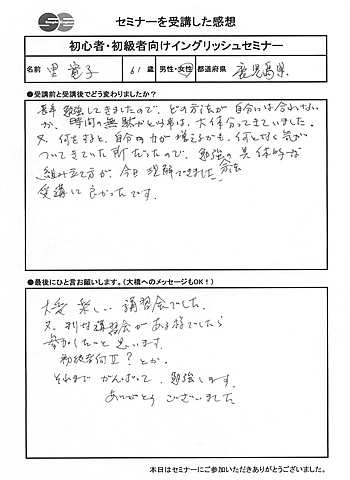 セミナーを受講した感想
初心者・初級者向けイングリッシュセミナー
名前 里 竜子 61 歳 男性・女性 都道府県 鹿児島県
●受講前と受講後でどう変わりましたか?
長年勉強してきましたので、どの方法が自分には合わないか、
時間の無駄かという事は、大体分ってきていました。
又、何をすると、自分の力が増えるかも、何となく気が
ついてきていた所だったので、勉強の具体的な
組み立て方が、今日理解できました。方法
受講して良かったです。
●最後にひと言お願いします。(大橋へのメッセージもOK!)
大変楽しい講習会でした。
又、講習会がある様でしたら
参加したいと思います。
初級者向Ⅱ?とか。
それまでがんばって、勉強します。
ありがとうございました
本日はセミナーにご参加いただきありがとうございました。